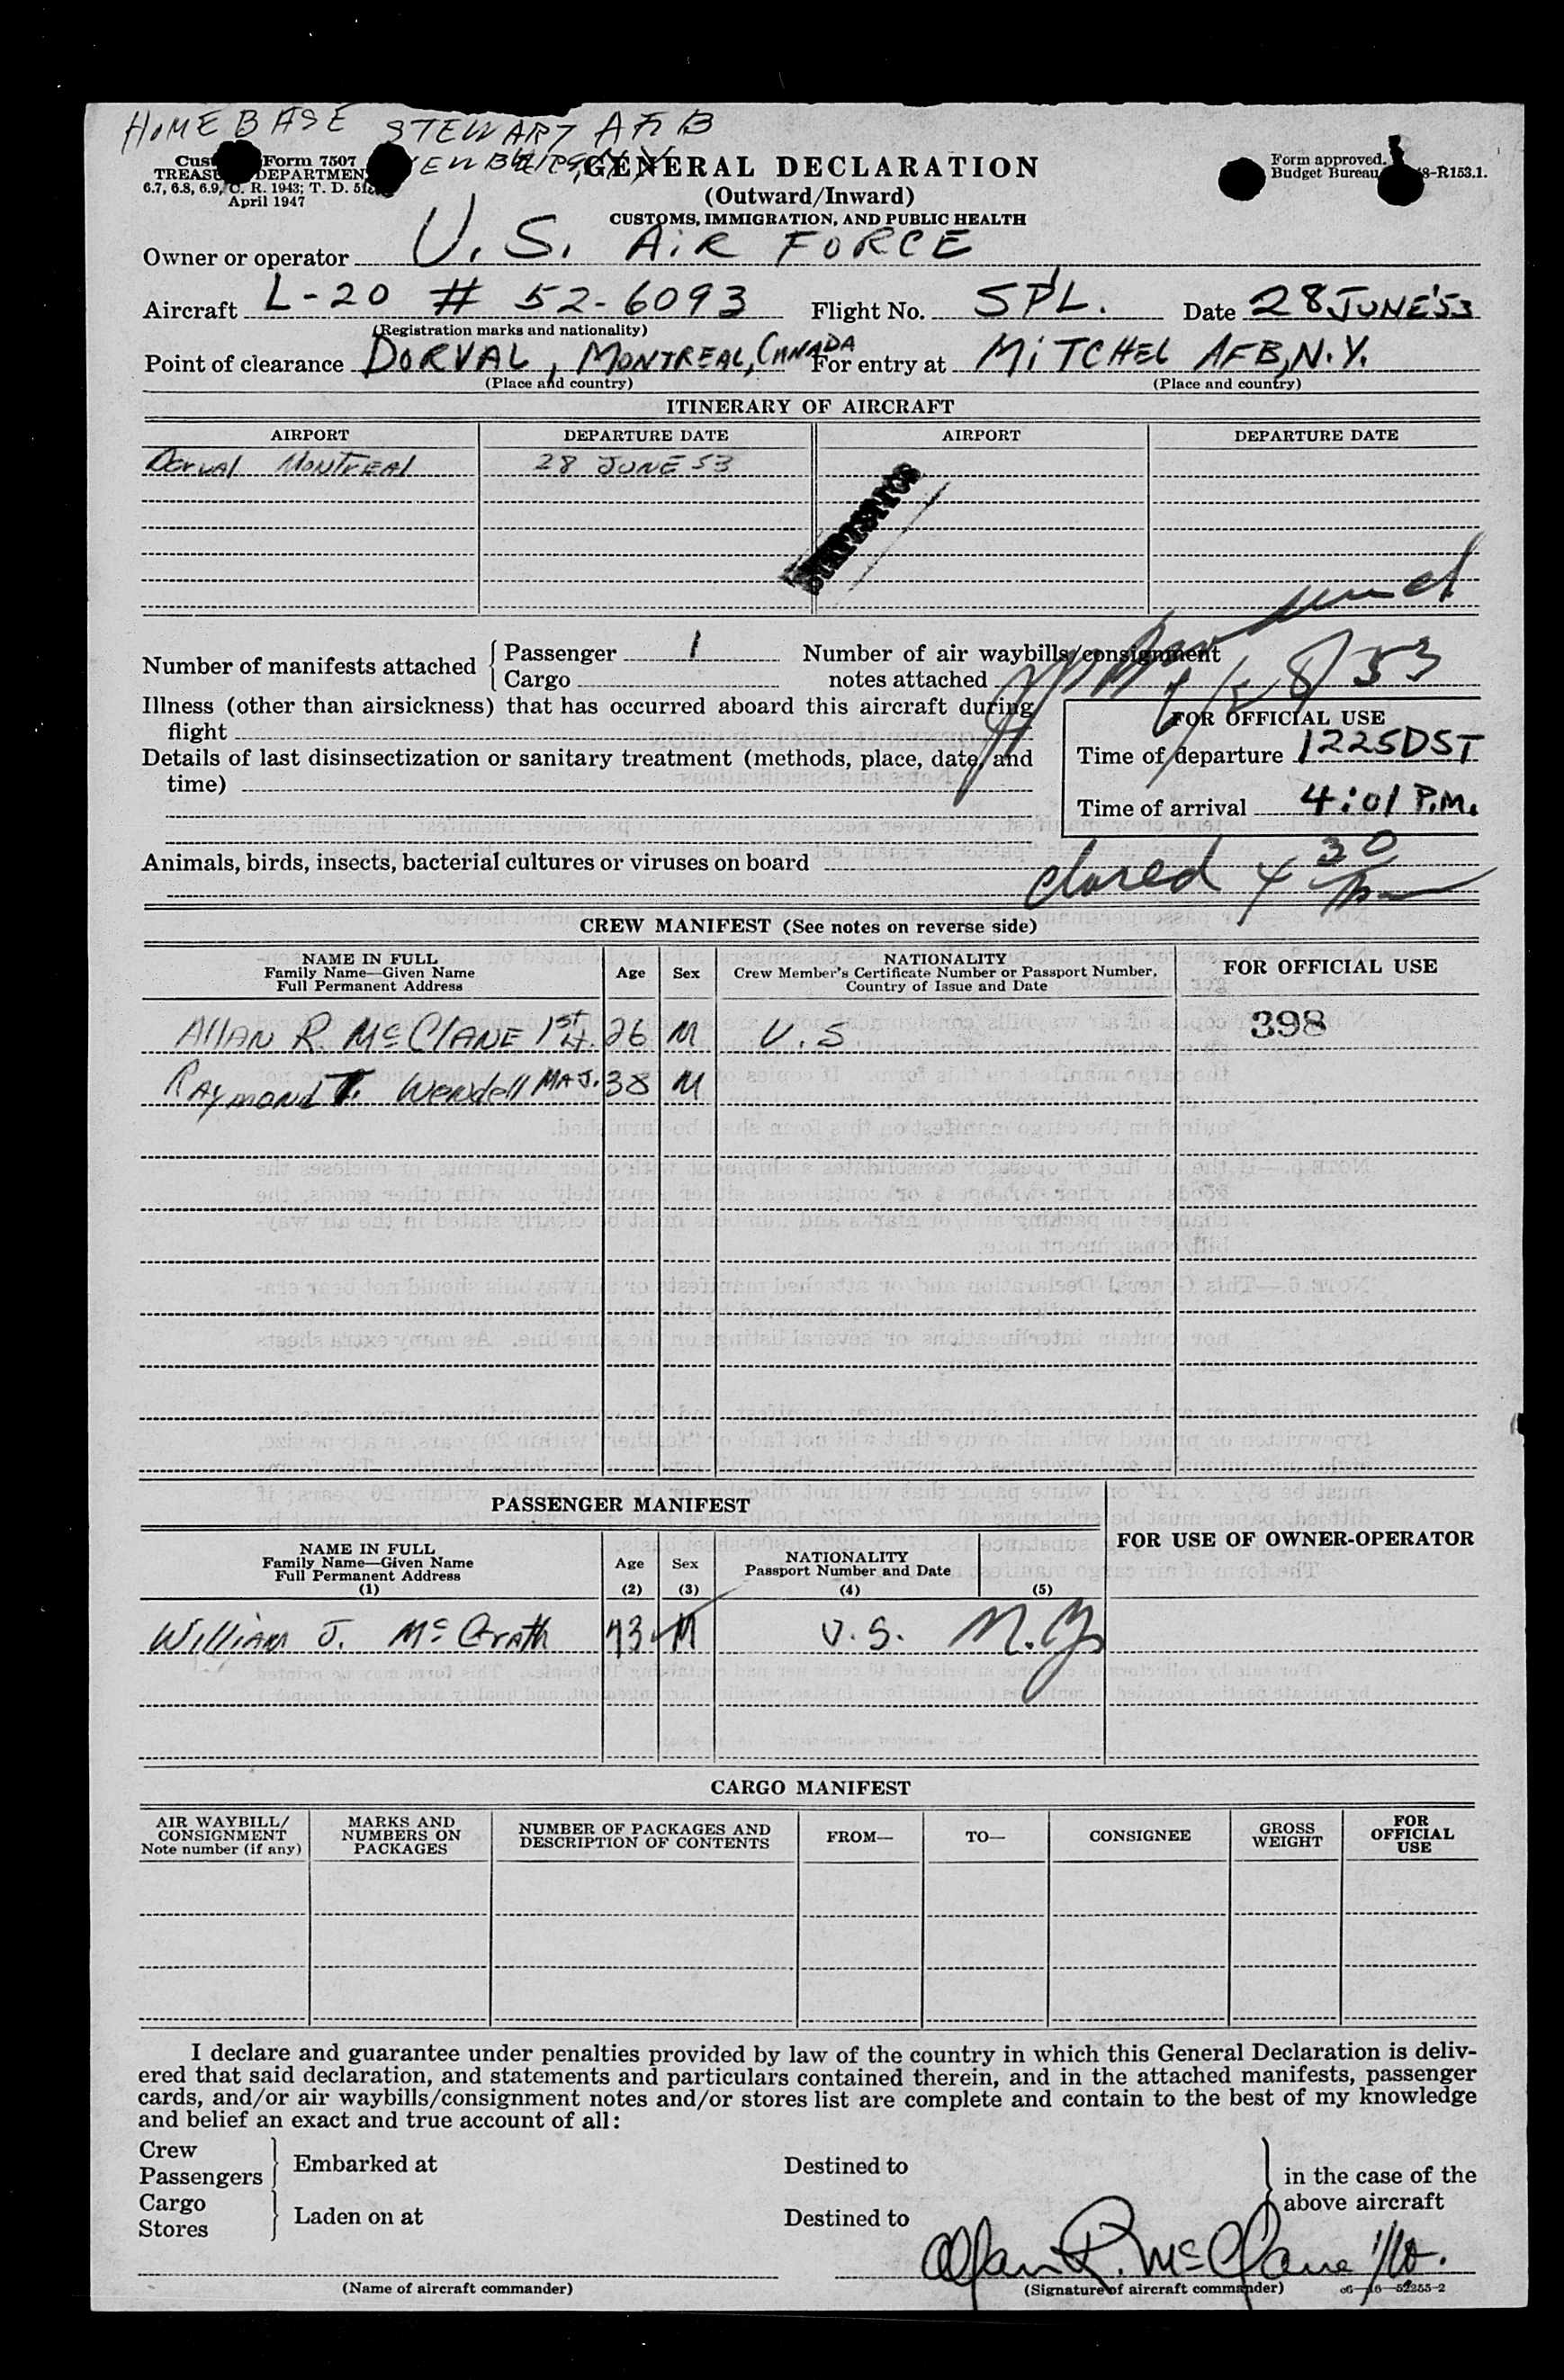 HOME BASE STEWART AFB
Form 7507
GENERAL DECLARATION
Form approved.
Budget Bureau -R153.1.
6.7, 6.8, 6.9, C. R. 1943; T. D.
April 1947
(Outward/Inward)
CUSTOMS, IMMIGRATION, AND PUBLIC HEALTH
Owner or operator U. S. AIR FORCE
Aircraft L-20 # 52-6093 Flight No. SPL. Date 28 JUNE '53
(Registration marks and nationality)
Point of clearance DORVAL, MONTREAL, CANADA For entry at MITCHEL AFB, N.Y.
(Place and country) (Place and country)
ITINERARY OF AIRCRAFT
AIRPORT DEPARTURE DATE AIRPORT DEPARTURE DATE
Dorval MONTREAL 28 JUNE 53
STATISTICS
Number of manifests attached Passenger 1
Cargo
Number of air waybills/consignment
notes attached
6/28/53
Illness (other than airsickness) that has occurred aboard this aircraft during
flight
Details of last disinsectization or sanitary treatment (methods, place, date, and
time)
FOR OFFICIAL USE
Time of departure 1225DST
Time of arrival 4:01 P.M.
Animals, birds, insects, bacterial cultures or viruses on board
4 30
CREW MANIFEST (See notes on reverse side)
NAME IN FULL
Family Name—Given Name
Full Permanent Address
Age Sex
NATIONALITY
Crew Member's Certificate Number or Passport Number,
Country of Issue and Date
FOR OFFICIAL USE
ALLAN R. McCLANE 1st Lt. 26 M U.S 398
RAYMOND T. Wendell MAJ. 38 M
PASSENGER MANIFEST
FOR USE OF OWNER-OPERATOR
NAME IN FULL
Family Name—Given Name
Full Permanent Address
(1)
Age
(2)
Sex
(3)
NATIONALITY
Passport Number and Date
(4) (5)
WILLIAM J. McGrath 43 M U.S. N.Y.
CARGO MANIFEST
AIR WAYBILL/
CONSIGNMENT
Note number (if any)
MARKS AND
NUMBERS ON
PACKAGES
NUMBER OF PACKAGES AND
DESCRIPTION OF CONTENTS
FROM— TO— CONSIGNEE
GROSS
WEIGHT
FOR
OFFICIAL
USE
I declare and guarantee under penalties provided by law of the country in which this General Declaration is deliv-
ered that said declaration, and statements and particulars contained therein, and in the attached manifests, passenger
cards, and/or air waybills/consignment notes and/or stores list are complete and contain to the best of my knowledge
and belief an exact and true account of all:
Crew
Passengers
Embarked at Destined to
Cargo
Stores
Laden on at Destined to
in the case of the
above aircraft
Allan R. McClane 1/Lt.
(Name of aircraft commander) (Signature of aircraft commander)